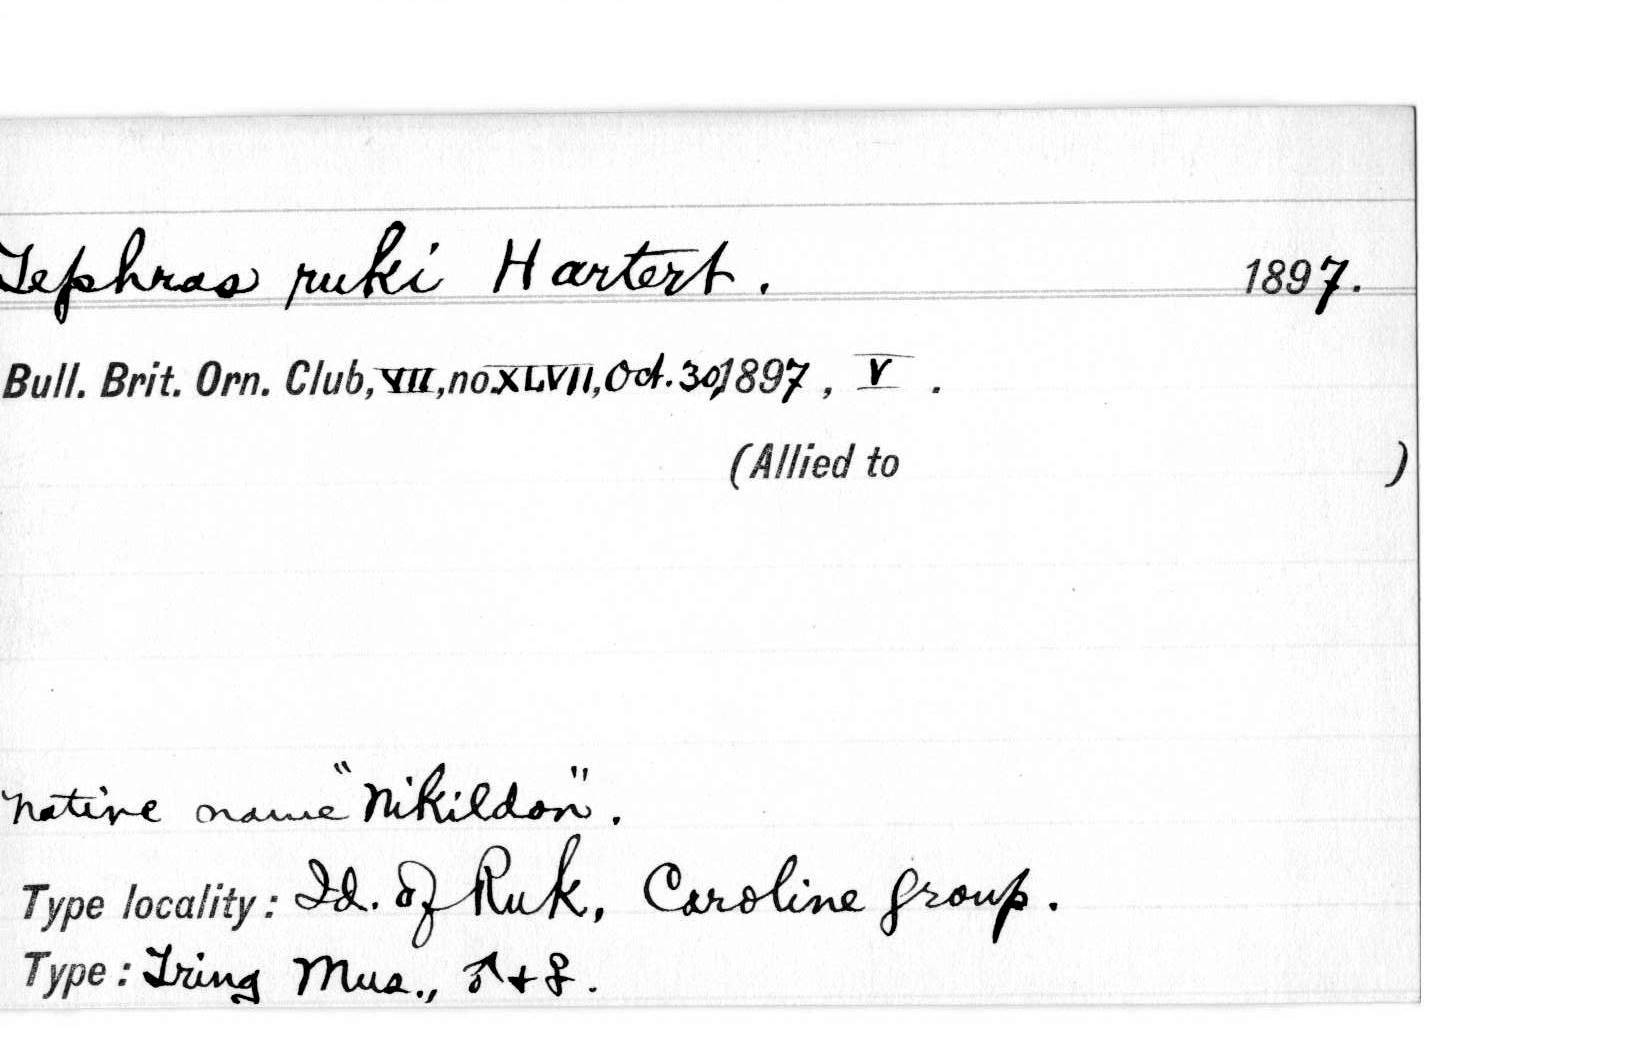 Tephras ruki Hartert. 1897.
Bull. Brit. Orn. Club, VII, no. XLVII, Oct. 30, 1897, V.
(Allied to )
native name "Nikildon".
Type locality: Id. of Ruk, Caroline group.
Type: Tring Mus., ♂ + ♀.